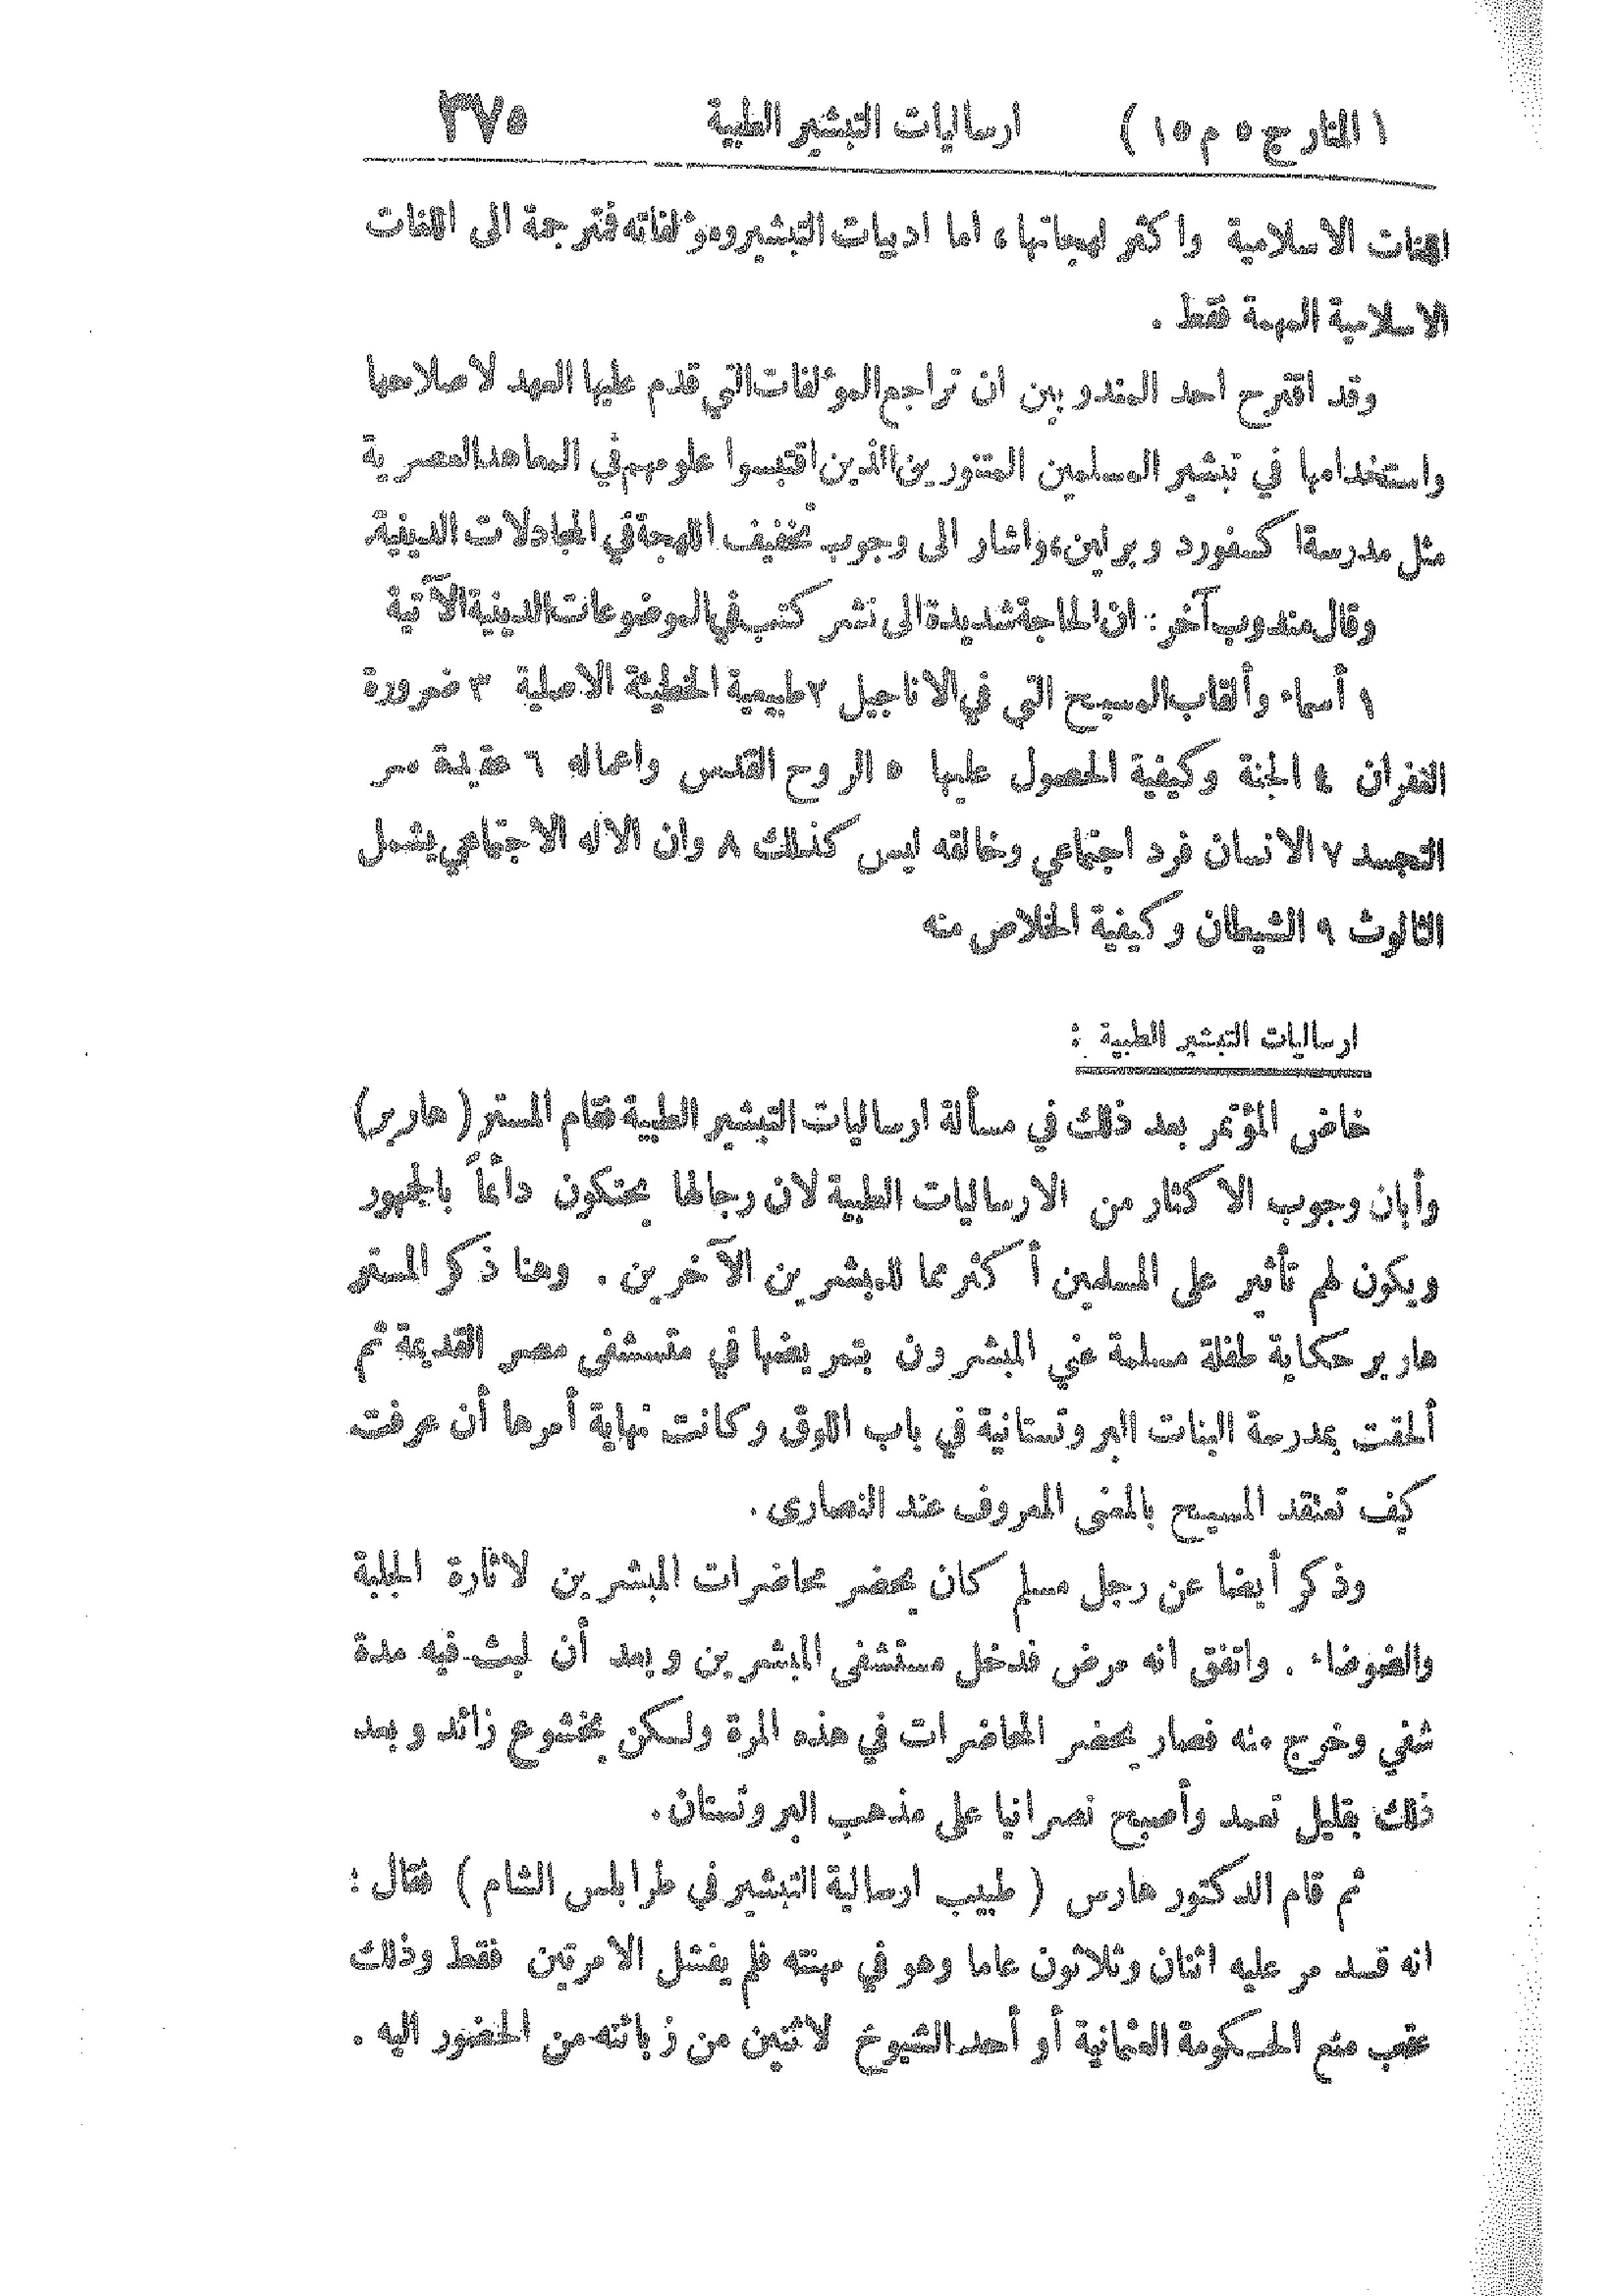 ( المنار ج ٥ م ١٥ ) ارساليات التبشير الطبية ٣٧٥
اللغات الاسلامية واكثر لهجاتها، اما ادبيات التبشير ومؤلفاته فمترجمة الى اللغات
الاسلامية المهمة فقط .
وقد اقترح احد المندوبين ان تراجع المؤلفات التي قدم عليها العهد لاصلاحها
واستخدامها في تبشير المسلمين المتنورين الذين اقتبسوا علومهم في المعاهد العصرية
مثل مدرسة اكسفورد وبرلين، واشار الى وجوب تخفيف اللهجة في المجادلات الدينية.
وقال مندوب آخر : ان الحاجة شديدة الى نشر كتب في الموضوعات الدينية الآتية
١ أسماء وألقاب المسيح التي في الاناجيل ٢ طبيعة الخطيئة الاصلية ٣ ضرورة
الغفران ٤ الجنة وكيفية الحصول عليها ٥ الروح القدس واعماله ٦ عقيدة سر
التجسد ٧ الانسان فرد اجتماعي وخالقه ليس كذلك ٨ وان الاله الاجتماعي يشمل
الثالوث ٩ الشيطان وكيفية الخلاص منه
ارساليات التبشير الطبية :
خاض المؤتمر بعد ذلك في مسألة ارساليات التبشير الطبية فقام المستر ( هاربر )
وأبان وجوب الاكثار من الارساليات الطبية لان رجالها يحتكون دائماً بالجمهور
ويكون لهم تأثير على المسلمين أكثر مما للمبشرين الآخرين . وهنا ذكر المستر
هاربر حكاية طفلة مسلمة عني المبشرون بتمريضها في مستشفى مصر القديمة ثم
ألحقت بمدرسة البنات البروتستانية في باب اللوق وكانت نهاية أمرها أن عرفت
كيف تعتقد المسيح بالمعنى المعروف عند النصارى .
وذكر أيضا عن رجل مسلم كان يحضر محاضرات المبشرين لاثارة الجلبة
والضوضاء . واتفق انه مرض فدخل مستشفى المبشرين وبعد أن لبث فيه مدة
شفي وخرج منه فصار يحضر المحاضرات في هذه المرة ولكن بخشوع زائد وبعد
ذلك بقليل تعمد وأصبح نصرانيا على مذهب البروتستان .
ثم قام الدكتور هارس ( طبيب ارسالية التبشير في طرابلس الشام ) فقال :
انه قد مر عليه اثنان وثلاثون عاما وهو في مهنته فلم يفشل الا مرتين فقط وذلك
عقب منع الحكومة العثمانية أو أحد الشيوخ لاثنين من زبائنه من الحضور اليه .